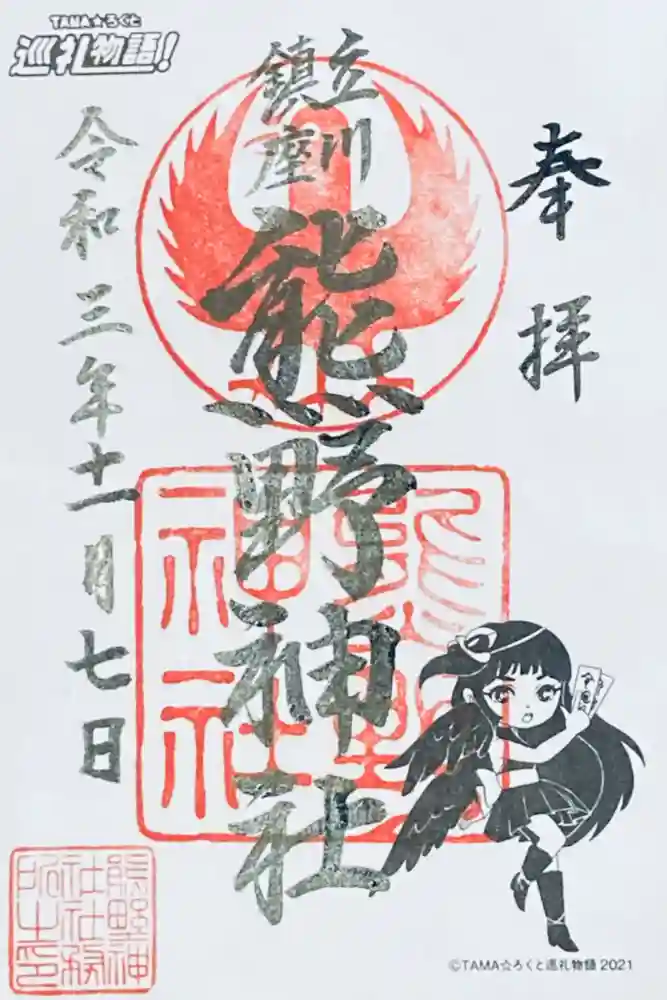 TAMA☆ろくと
巡礼物語！
奉拝
立川
鎮座
熊野神社
令和三年十一月七日
熊野
神社
熊野神
社社務
所之印
©TAMA☆ろくと巡礼物語 2021